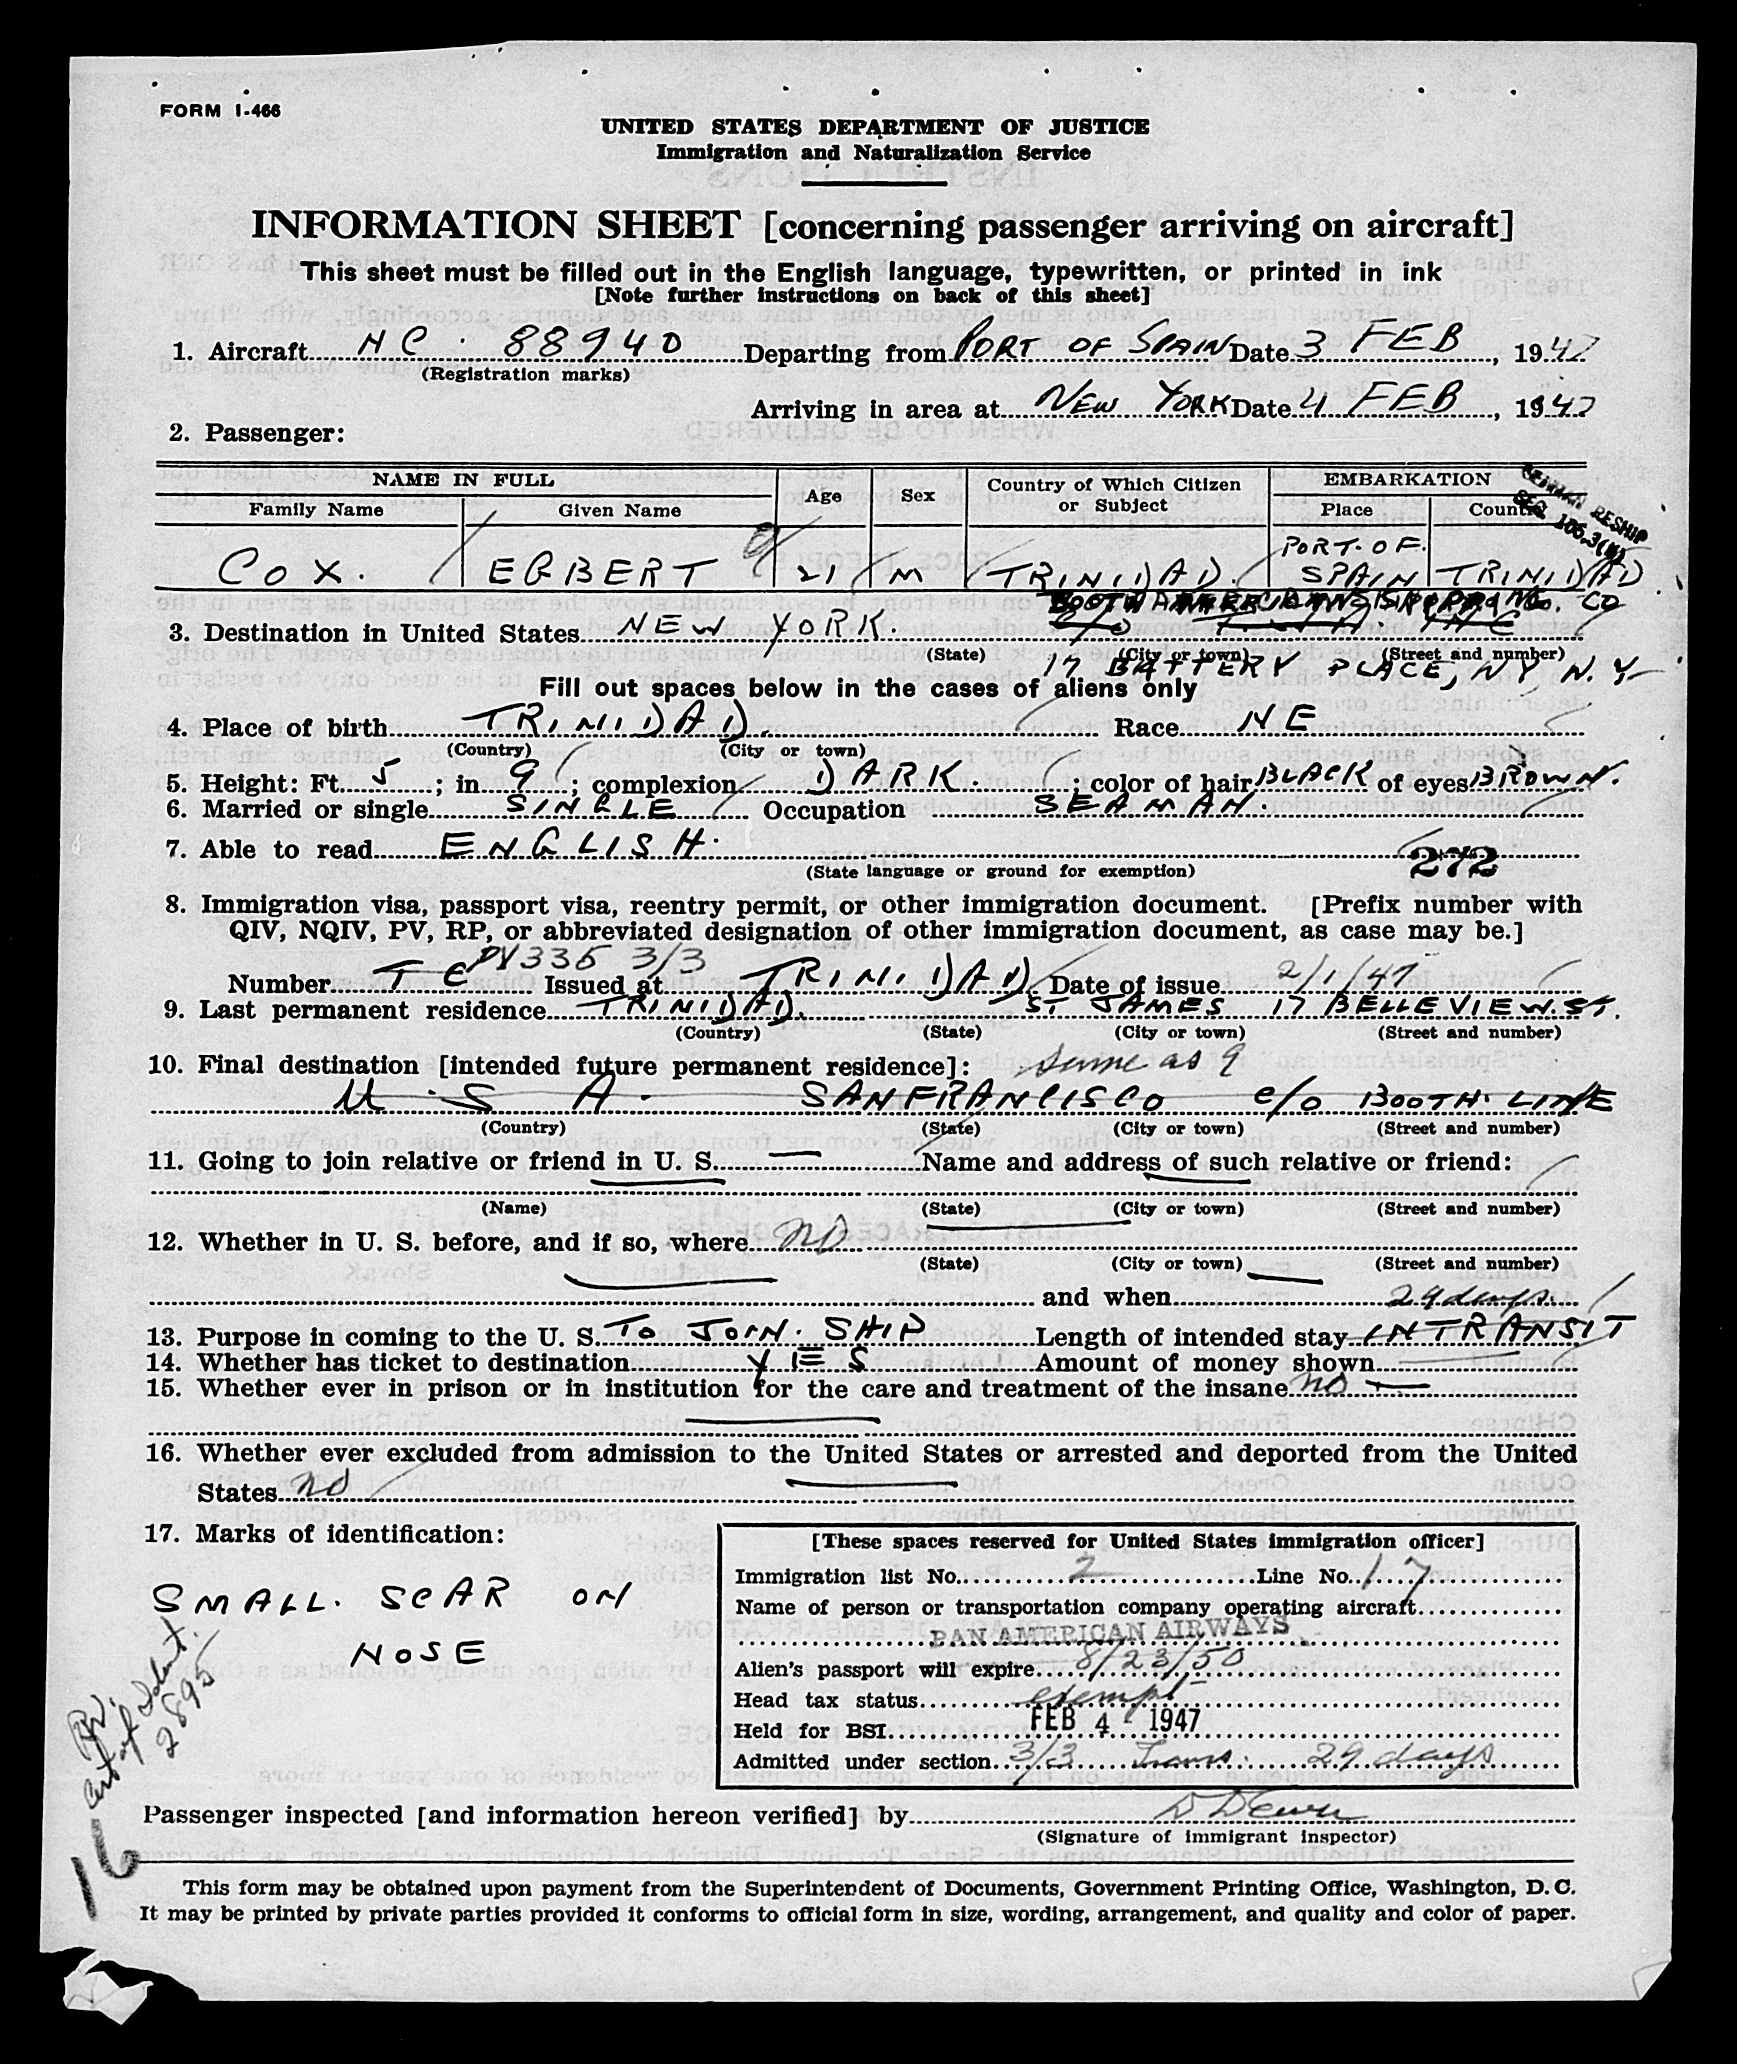 FORM I-466
UNITED STATES DEPARTMENT OF JUSTICE
Immigration and Naturalization Service
INFORMATION SHEET [concerning passenger arriving on aircraft]
This sheet must be filled out in the English language, typewritten, or printed in ink
[Note further instructions on back of this sheet]
1. Aircraft NC. 88940 Departing from PORT OF SPAIN Date 3 FEB, 1947
(Registration marks)
Arriving in area at NEW YORK Date 4 FEB, 1947
2. Passenger:
NAME IN FULL Age Sex Country of Which Citizen or Subject EMBARKATION
Family Name Given Name Place Country
SEAMAN RESHIP
SEC 105.3(
COX. EGBERT 21 M TRINIDAD. PORT. OF. SPAIN TRINIDAD
3. Destination in United States NEW YORK. C/O
(State) (City or town) (Street and number)
17 BATTERY PLACE, NY N.Y
Fill out spaces below in the cases of aliens only
4. Place of birth TRINIDAD. Race NE
(Country) (City or town)
5. Height: Ft. 5; in 9; complexion DARK.; color of hair BLACK of eyes BROWN.
6. Married or single SINGLE Occupation SEAMAN.
7. Able to read ENGLISH.
(State language or ground for exemption) 272
8. Immigration visa, passport visa, reentry permit, or other immigration document. [Prefix number with
QIV, NQIV, PV, RP, or abbreviated designation of other immigration document, as case may be.]
PV335 3/3
Number T C Issued at TRINIDAD Date of issue 2/1/47
9. Last permanent residence TRINIDAD. ST JAMES 17 BELLEVIEW. ST.
(Country) (State) (City or town) (Street and number)
10. Final destination [intended future permanent residece]: same as 9
U.S A. SANFRANCISCO c/o BOOTH. LINE
(Country) (State) (City or town) (Street and number)
11. Going to join relative or friend in U. S. — Name and address of such relative or friend:
(Name) (State) (City or town) (Street and number)
12. Whether in U. S. before, and if so, where no
(State) (City or town) (Street and number)
and when 29 days.
13. Purpose in coming to the U. S. TO JOIN. SHIP Length of intended stay INTRANSIT
14. Whether has ticket to destination YES Amount of money shown —
15. Whether ever in prison or in institution for the care and treatment of the insane no —
16. Whether ever excluded from admission to the United States or arrested and deported from the United
States no
17. Marks of identification:
SMALL. SCAR ON
NOSE
Cert of Ident.
2895
16
[These spaces reserved for United States immigration officer]
Immigration list No. 2 Line No. 17
Name of person or transportation company operating aircraft
PAN AMERICAN AIRWAYS
Alien's passport will expire 8/23/50
Head tax status exempt
Held for BSI FEB 4 - 1947
Admitted under section 3/3 Trans. 29 days
Passenger inspected [and information hereon verified] by
(Signature of immigrant inspector)
This form may be obtained upon payment from the Superintendent of Documents, Government Printing Office, Washington, D. C.
It may be printed by private parties provided it conforms to official form in size, wording, arrangement, and quality and color of paper.